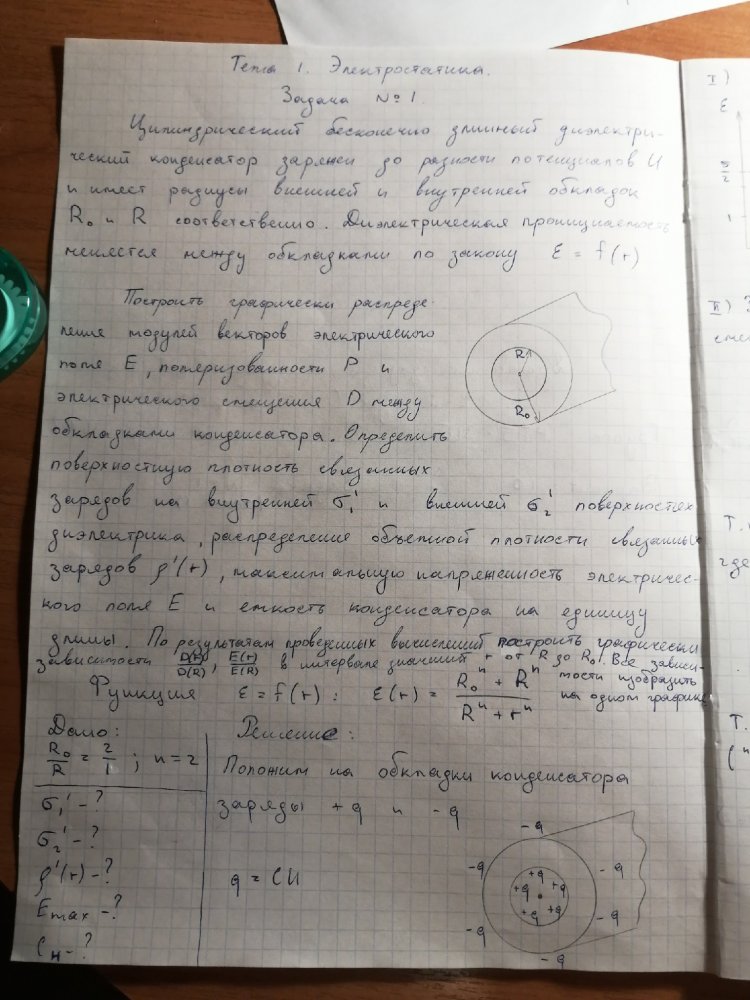 Тема 1. Электростатика.
Задача №1.
Цилиндрический бесконечно длинный диэлектри-
ческий конденсатор заряжен до разности потенциалов U
и имеет радиусы внешней и внутренней обкладок
R₀ и R соответственно. Диэлектрическая проницаемость
меняется между обкладками по закону ε = f(r)
Построить графически распреде-
ление модулей векторов электрического
поля E, поляризованности P и
электрического смещения D между
обкладками конденсатора. Определить
поверхностную плотность связанных
зарядов на внутренней σ₁' и внешней σ₂' поверхностях
диэлектрика, распределение объемной плотности связанных
зарядов ρ'(r), максимальную напряженность электричес-
кого поля E и емкость конденсатора на единицу
длины. По результатам проведенных вычислений построить графически
зависимости D(r)/D(R), E(r)/E(R) в интервале значений r от R до R₀. Все зависи-
мости изобразить
на одном графике
Функция ε = f(r): ε(r) = (R₀ⁿ + Rⁿ)/(Rⁿ + rⁿ)
R
R₀
Дано:
R₀/R = 2/1; n = 2
σ₁' - ?
σ₂' - ?
ρ'(r) - ?
Emax - ?
Cн - ?
Решение:
Положим на обкладки конденсатора
заряды +q и -q
q = CU
-q
-q
-q
-q
-q
-q
+q
+q
+q
+q
+q
I)
ε
5/2
1
II)
Т.
где
Т.